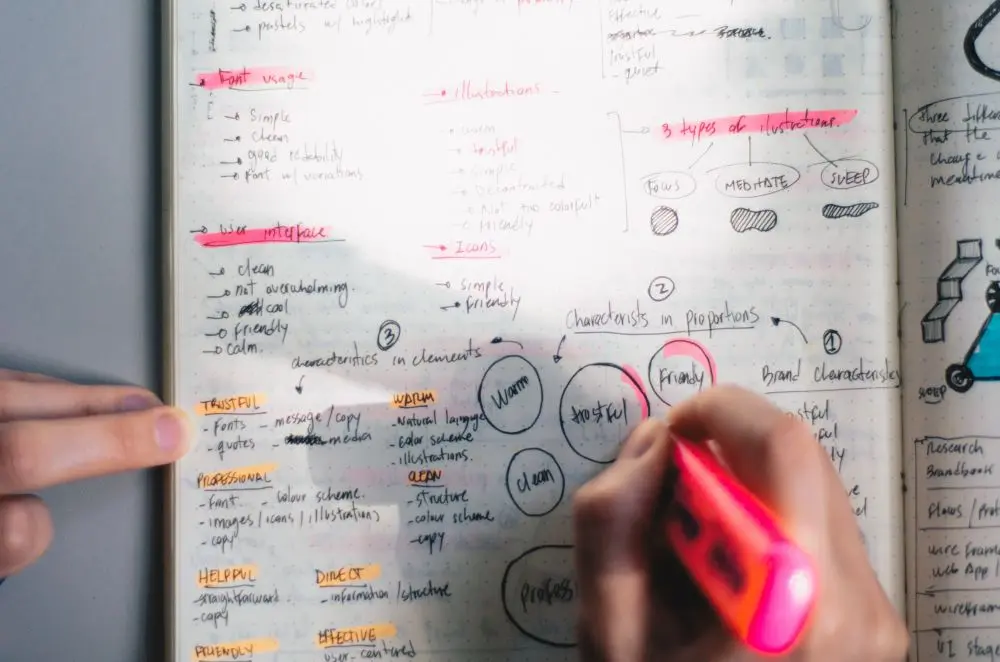 desaturated colors
pastels w/ highlight
Effective
trustful
- quiet
Font usage
Simple
Clean
good redability
Font w/ variations
illustrations
warm
trustful
simple
Not too colorful
friendly
3 types of ilustrations.
FOCUS
MEDITATE
SLEEP
user interface
clean
not overwhelming.
cool
friendly
calm.
Icons
simple
friendly
2
Characterists in proportions
3
characteristics in elements
1
Brand characteristics
Warm
trustful
friendly
clean
TRUSTFUL
- Fonts - message/copy
- quotes - media
WARM
- Natural languge
- Color scheme
- illustrations.
PROFESSIONAL
- Font. - Colour scheme.
- images/icons/illustrations
- copy
CLEAN
- structure
- colour scheme
- copy
HELPFUL
- straightforward.
- copy
DIRECT
- information/structure
FRIENDLY
EFFECTIVE
user-centered
Three
that the
change
SLEEP
Research
Brandbook
Flows /
wire frame
web App /
wirefram
UI stag